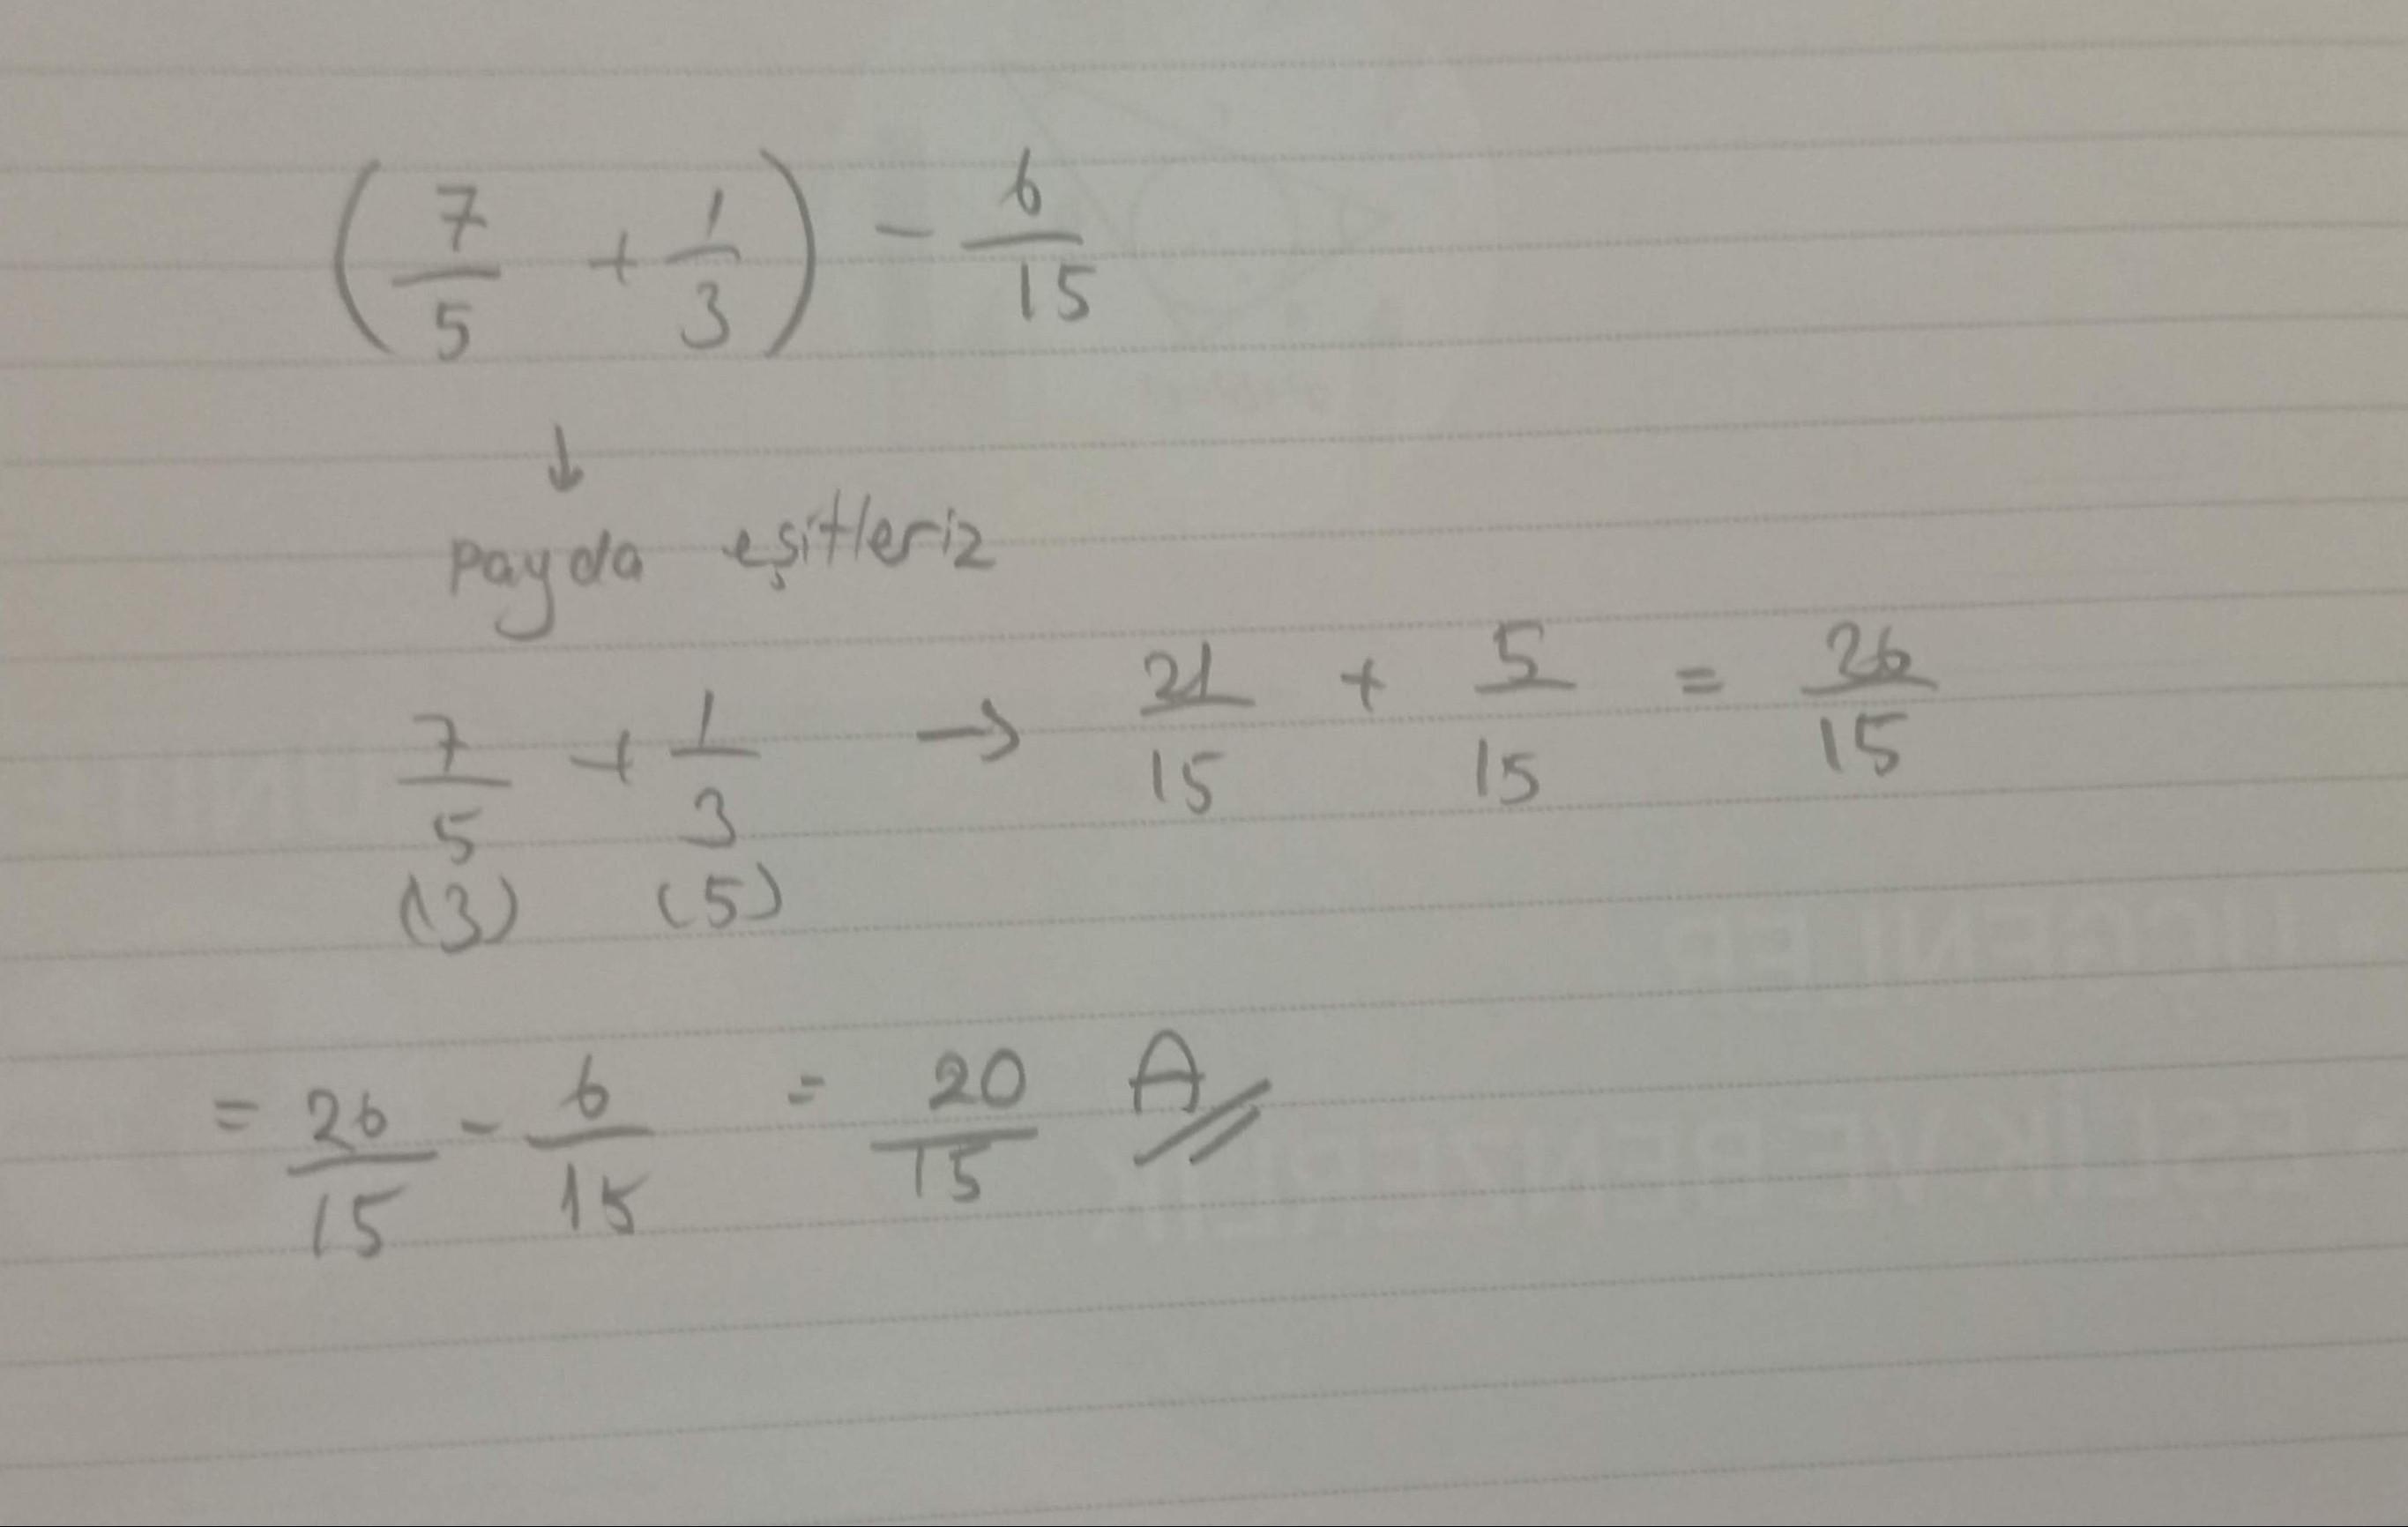 (7/5 + 1/3) - 6/15
↓
Payda eşitleriz
7/5 + 1/3 → 21/15 + 5/15 = 26/15
(3) (5)
= 26/15 - 6/15 = 20/15 A